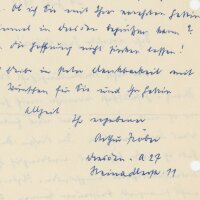 Ob ich Sie mit Ihrer verehrten Gattin
einmal in Dresden begrüßen kann?
die Hoffnung nicht sinken lassen!
in steter Dankbarkeit mit
Wünschen für Sie und Ihre Gattin
allzeit
Ihr ergebener
Arthur
Dresden - A 27
11